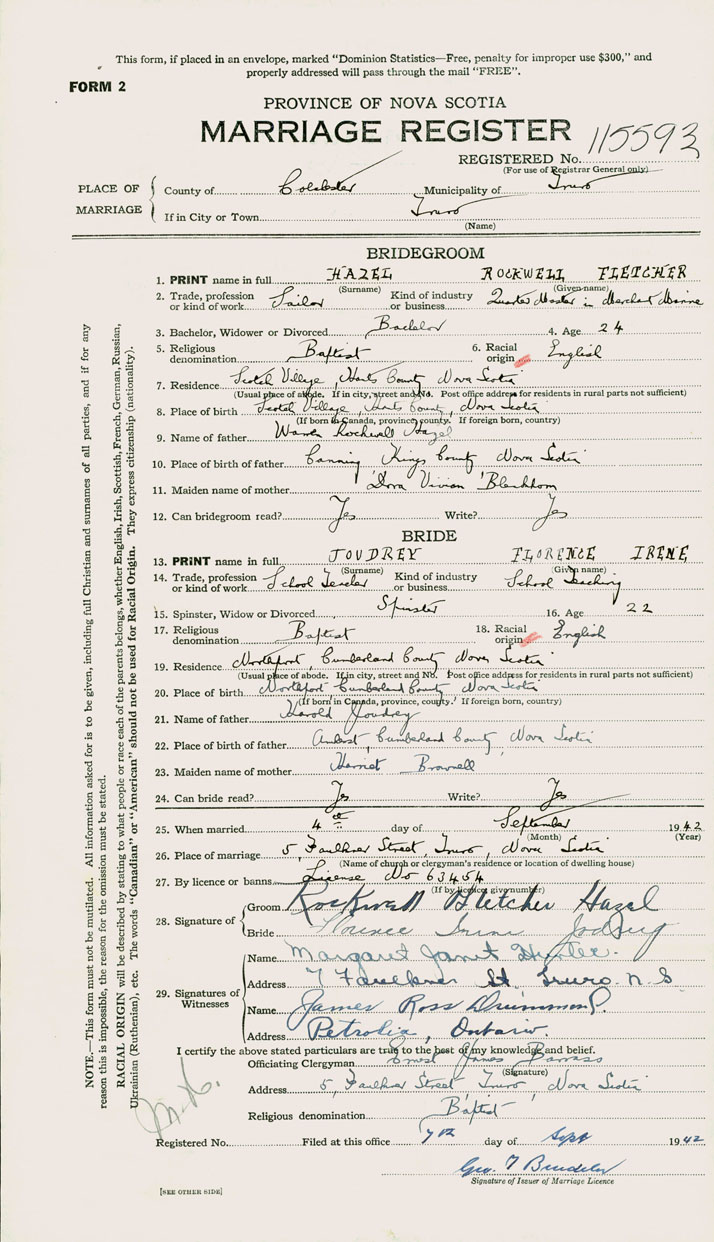 This form, if placed in an envelope, marked "Dominion Statistics—Free, penalty for improper use $300," and
properly addressed will pass through the mail "FREE".
FORM 2
PROVINCE OF NOVA SCOTIA
MARRIAGE REGISTER
115593
REGISTERED No.
(For use of Registrar General only)
PLACE OF MARRIAGE
County of Colchester Municipality of Truro
If in City or Town Truro
(Name)
BRIDEGROOM
1. PRINT name in full HAZEL ROCKWELL FLETCHER
(Surname) (Given name)
2. Trade, profession or kind of work Sailor Kind of industry or business Quarter Master in Merchant Marine
3. Bachelor, Widower or Divorced Bachelor 4. Age 24
5. Religious denomination Baptist 6. Racial origin English
7. Residence Scotch Village, Hants County Nova Scotia
(Usual place of abode. If in city, street and No. Post office address for residents in rural parts not sufficient)
8. Place of birth Scotch Village, Hants County, Nova Scotia
(If born in Canada, province, county. If foreign born, country)
9. Name of father Rockwell Hazel
10. Place of birth of father Canning Kings County Nova Scotia
11. Maiden name of mother Dora Vivian
12. Can bridegroom read? Yes Write? Yes
BRIDE
13. PRINT name in full JOUDREY FLORENCE IRENE
(Surname) (Given name)
14. Trade, profession or kind of work School Teacher Kind of industry or business School Teaching
15. Spinster, Widow or Divorced Spinster 16. Age 22
17. Religious denomination Baptist 18. Racial origin English
19. Residence Northport, Cumberland County Nova Scotia
(Usual place of abode. If in city, street and No. Post office address for residents in rural parts not sufficient)
20. Place of birth Northport Cumberland County Nova Scotia
(If born in Canada, province, county. If foreign born, country)
21. Name of father Harold Joudrey
22. Place of birth of father Amherst, Cumberland County Nova Scotia
23. Maiden name of mother Harriet Brownell
24. Can bride read? Yes Write? Yes
25. When married 4th day of September 1942
(Month) (Year)
26. Place of marriage 5, Faulkner Street, Truro, Nova Scotia
(Name of church or clergyman's residence or location of dwelling house)
27. By licence or banns License No 63454
(If by licence, give number)
28. Signature of
Groom Rockwell Fletcher Hazel
Bride Florence Irene Joudrey
29. Signatures of Witnesses
Name Margaret Janet Hunter.
Address 7 Faulkner St. Truro. N.S
Name James Ross Drummond.
Address Petrolia, Ontario.
I certify the above stated particulars are true to the best of my knowledge and belief.
Officiating Clergyman Ernest James Barrass
(Signature)
Address 5, Faulkner Street, Truro, Nova Scotia
Religious denomination Baptist
Registered No. Filed at this office 7th day of Sept 1942
Geo.
Signature of Issuer of Marriage Licence
[SEE OTHER SIDE]
NOTE.—This form must not be mutilated. All information asked for is to be given, including full Christian and surnames of all parties, and if for any
reason this is impossible, the reason for the omission must be stated.
RACIAL ORIGIN will be described by stating to what people or race each of the parents belongs, whether English, Irish, Scottish, French, German, Russian,
Ukrainian (Ruthenian), etc. The words "Canadian" or "American" should not be used for Racial Origin. They express citizenship (nationality).